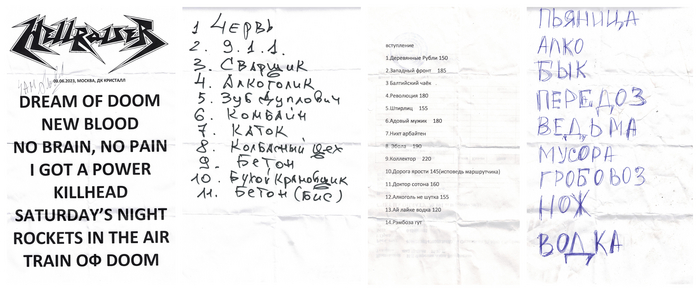 HELLRAISER
09.06.2023, МОСКВА, ДК КРИСТАЛЛ
DREAM OF DOOM
NEW BLOOD
NO BRAIN, NO PAIN
I GOT A POWER
KILLHEAD
SATURDAY'S NIGHT
ROCKETS IN THE AIR
TRAIN OФ DOOM
1 ЧЕРВЬ
2. 9.1.1.
3. СВАРЩИК
4. АЛКОГОЛИК
5. ЗУБ ДУПЛОВИЧ
6. КОМБАЙН
7. КАТОК
8. КОЛБАСНЫЙ ЦЕХ
9. БЕТОН
10. БУХОЙ КРАНОВЩИК
11. БЕТОН (БИС)
вступление
1.Деревянные Рубли 150
2.Западный фронт 185
3.Балтийский чаёк
4.Революция 180
5.Штирлиц 155
6.Адовый мужик 180
7.Нихт арбайтен
8. Эбола 190
9.Коллектор 220
10.Дорога ярости 145(исповедь маршрутчика)
11.Доктор сотона 160
12.Алкоголь не шутка 155
13.Ай лайке водка 120
14.Рэмбоза гут
ПЬЯНИЦА
АЛКО
БЫК
ПЕРЕДОЗ
ВЕДЬМА
МУСОРА
ГРОБОВОЗ
НОЖ
ВОДКА